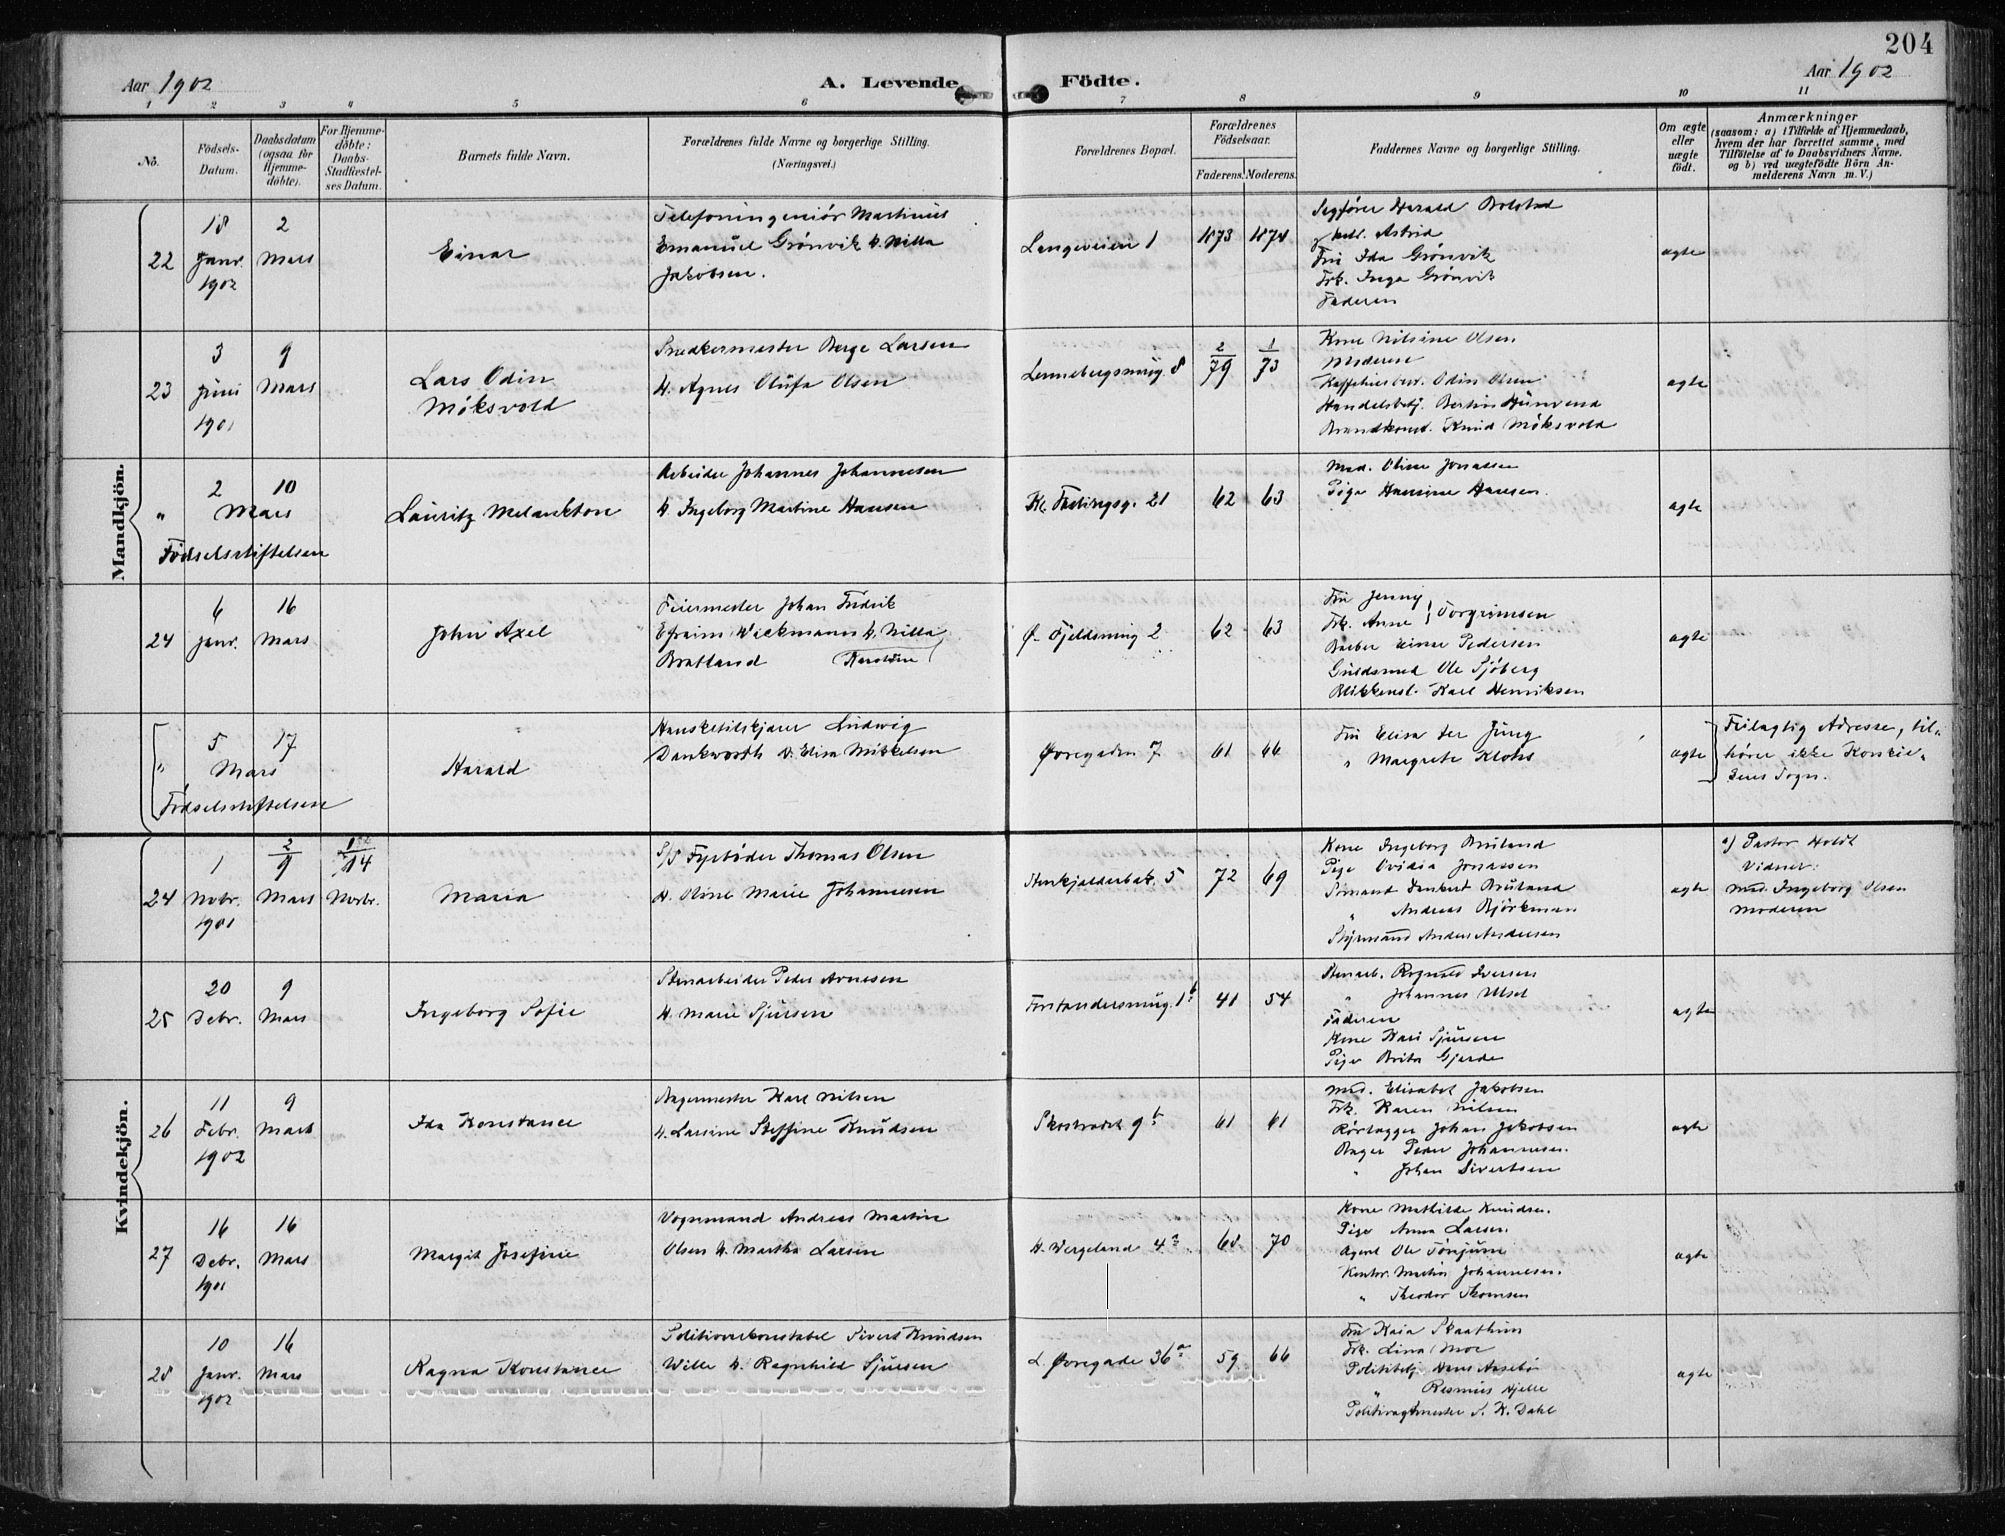 204
Aar 1902
A. Levende Födte.
Aar 1902
1 2 3 4 5 6 7 8 9 10 11
No.
Födsels-Datum.
Daabsdatum (ogsaa for Hjemme-döbte).
For Hjemme-döbte: Daabs-Stadfæstel-ses Datum.
Barnets fulde Navn.
Forældrenes fulde Navne og borgerlige Stilling.
(Næringsvei.)
Forældrenes Bopæl.
Forældrenes Födselsaar.
Faderens. Moderens.
Faddernes Navne og borgerlige Stilling.
Om ægte eller uægte födt.
Anmærkninger
(saasom: a) i Tilfælde af Hjemmedaab, hvem der har forrettet samme, med Tilföielse af to Daabsvidners Navne. og b) ved uægtefödte Börn An-melderens Navn m. V.)
Mandkjön.
22
18 Janr. 1902
2 Mars
Einar
Telefoningeniör Martinus
Emanuel Grönvik & Nilla
Jakobsen.
Langeveien 1
1873 1874
Sagförer Harald Bolstad
Astrid
Fru Ida Grönvik
Frk. Inga Grönvik
Faderen
ægte
23
3 Juni 1901
9 Mars
Lars Odin
Möksvold
Snedkermester Berge Larsen
& Agnes Olufa Olsen
Lennebergsmug. 8
2/79 1/73
Kone Nilsine Olsen
Moderen
Odin Olsen
Handelsbetj. Bertin
Brandkonst. Knud Möksvold
ægte
"
2 10
Mars
Födselsstiftelsen
Lauritz Melankton
Arbeider Johannes Johannesen
& Ingeborg Martine Hansen
21
62 63
Mad. Oline Jonassen
Pige Hansine Hansen.
ægte
24
6 Janr.
16 Mars
John Axel
Feiermester Johan Fredrik
Efraim Wickmann & Nilla
Bratland Karoline
Ö. Fjeldsmug 2
62 63
Fru Jenny
Frk. Anne } Torgrimsen
Barber Einar Pedersen
Guldsmed Ole Sjöberg
Blikkensl. Karl Henriksen
ægte
"
5 17
Mars
Födselsstiftelsen
Harald
Hansketilskjærer Ludwig
Dankworth & Elisa Mikkelsen
Övregaden 7
61 66
Fru Elisa ter Jung
" Margrete Klohs
ægte
Feilagtig Adresse, til-
hörer ikke Korskir-
kens Sogn.
Kvindekjön.
24
1 Novbr. 1901
2/9 Mars
14 Novbr.
Maria
S/S Fyrböder Thomas Olsen
& Oline Marie Johannesen
Stenkjælderbak. 5
72 69
Kone Ingeborg Bruland
Pige Ovidia Jonassen
Sömand Bruland
" Andreas Björkman
Styrmand Anders Andersen
ægte
a) Pastor Holdt
Vidner:
Mad. Ingeborg Olsen
Moderen
25
20 Debr.
9 Mars
Ingeborg Sofie
Stenarbeider Peder Arnesen
& Marie Sjursen
Forstandersmug. 1b
41 54
Stenarb. Rognald Iversen
" Johannes Ulset
Faderen
Kone Kari Sjursen
Pige Brita Gjerde
ægte
26
11 Febr. 1902
9 Mars
Ida Konstance
Bagermester Karl Nilsen
& Larsine Steffine Knudsen
Skostrædet 9b
61 61
Mad. Elisabet Jakobsen
Frk. Karen Nilsen
Rörlægger Johan Jakobsen
Bager Peder Johannesen.
" Johan Sivertsen
ægte
27
16 Debr. 1901
16 Mars
Margit Josefine
Vognmand Andreas Martin
Olsen & Martha Larsen
H. Wergeland 4a
68 70
Kone Mathilde Knudsen.
Pige Anna Larsen
Agent Ole Tönjum
Kontor. Martin Johannesen.
" Theodor Thomsen
ægte
28
10 Janr. 1902
16 Mars
Ragna Konstance
Politioverkonstabel Sivert Knudsen
Wille & Ragnhild Sjursen
L. Övregade 36a
59 66
Fru Kaia Skaathun
Frk. Lina Moe
Politibetj. Hans Aasebö
" Rasmus Hjelle
Politivagtmester S. K. Dahl
ægte